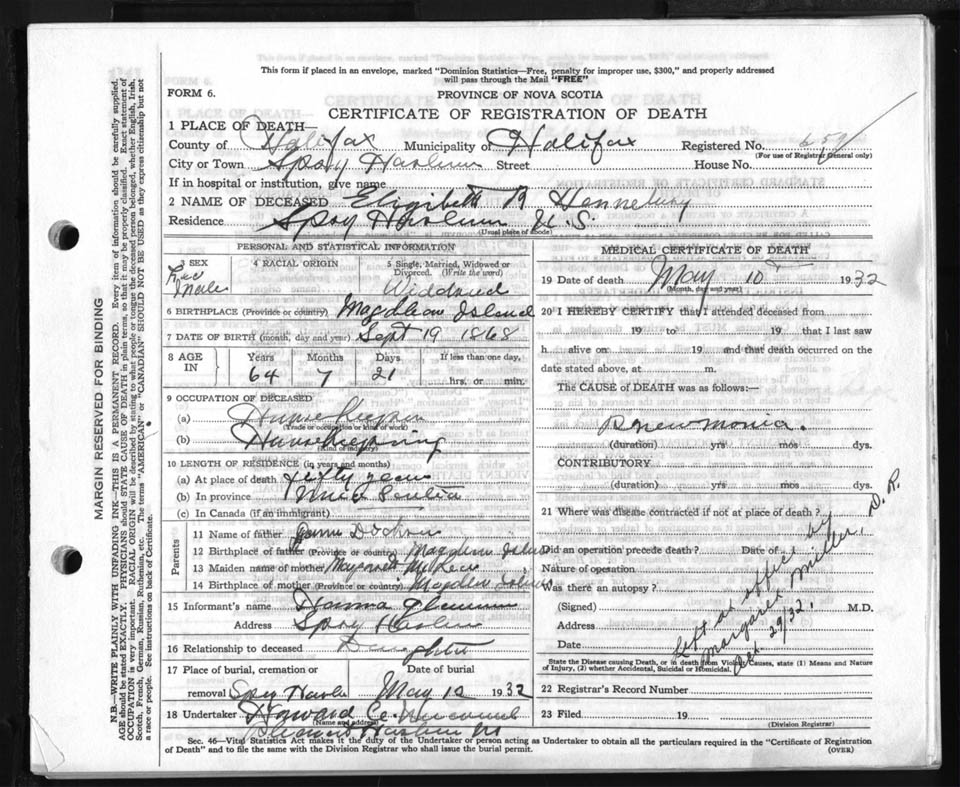 This form if placed in an envelope, marked "Dominion Statistics—Free, penalty for improper use, $300," and properly addressed
will pass through the Mail "FREE"
FORM 6.
PROVINCE OF NOVA SCOTIA
CERTIFICATE OF REGISTRATION OF DEATH
1 PLACE OF DEATH—
County of Halifax Municipality of Halifax Registered No.
(For use of Registrar General only)
City or Town Spry Harbour Street House No.
If in hospital or institution, give name
2 NAME OF DECEASED Elizabeth Henneberry
Residence Spry Harbour N.S.
(Usual place of abode)
PERSONAL AND STATISTICAL INFORMATION
3 SEX 4 RACIAL ORIGIN 5 Single, Married, Widowed or
Divorced. (Write the word)
Widowed
6 BIRTHPLACE (Province or country) Magdlean Island
7 DATE OF BIRTH (month, day and year) Sept 19 1868
8 AGE IN Years Months Days If less than one day,
64 7 21 hrs. or min.
9 OCCUPATION OF DECEASED
(a)
(Trade or occupation or kind of work)
(b) Housekeeping
(Kind of industry)
10 LENGTH OF RESIDENCE (in years and months)
(a) At place of death fifty years
(b) In province Nova Scotia
(c) In Canada (if an immigrant)
Parents
11 Name of father
12 Birthplace of father (Province or country) Magdlen
13 Maiden name of mother Margaret
14 Birthplace of mother (Province or country) Magdlen
15 Informant's name
Address Spry Harbour
16 Relationship to deceased Daughter
17 Place of burial, cremation or Date of burial
removal Spry Harbr May 12 1932
18 Undertaker Howard
(Name and address)
Sec. 46—Vital Statistics Act makes it the duty of the Undertaker or person acting as Undertaker to obtain all the particulars required in the "Certificate of Registration
of Death" and to file the same with the Division Registrar who shall issue the burial permit.
(OVER)
MEDICAL CERTIFICATE OF DEATH
19 Date of death May 10 1932
(Month, day and year)
20 I HEREBY CERTIFY that I attended deceased from
19 to 19 that I last saw
h alive on 19 and that death occurred on the
date stated above, at m.
The CAUSE of DEATH was as follows:—
Pnewmonia.
(duration) yrs mos dys.
CONTRIBUTORY
(duration) yrs mos dys.
21 Where was disease contracted if not at place of death?
Did an operation precede death? Date of
Nature of operation
Was there an autopsy?
(Signed) M.D.
Address
Date
Left at office by
Margaret Miller, D.R.
29/32.
State the Disease causing Death, or in death from Violent Causes, state (1) Means and Nature
of Injury, (2) whether Accidental, Suicidal or Homicidal.
22 Registrar's Record Number
23 Filed 19
(Division Registrar)
MARGIN RESERVED FOR BINDING
N.B.—WRITE PLAINLY WITH UNFADING INK—THIS IS A PERMANENT RECORD. Every item of information should be carefully supplied.
AGE should be stated EXACTLY. PHYSICIANS should STATE CAUSE OF DEATH in plain terms, so that it may be properly classified. Exact statement of
OCCUPATION is very important. RACIAL ORIGIN will be described by stating to what people or tongue the deceased person belonged, whether English, Irish,
Scotch, French, German, Russian, Ruthenian, etc. The terms "AMERICAN" or "CANADIAN" SHOULD NOT BE USED as they express citizenship but not
a race or people. See instructions on back of Certificate.